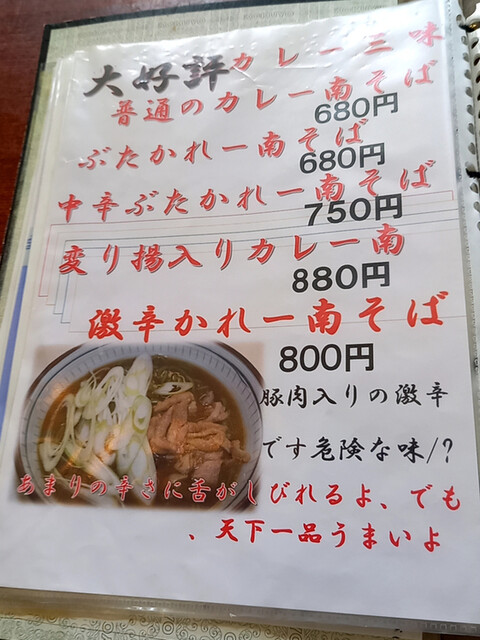 大好評カレー三昧
普通のカレー南そば
680円
ぶたかれー南そば
680円
中辛ぶたかれー南そば
750円
変り揚入りカレー南
880円
激辛かれー南そば
800円
豚肉入りの激辛
です危険な味/?
あまりの辛さに舌がしびれるよ、でも
、天下一品うまいよ